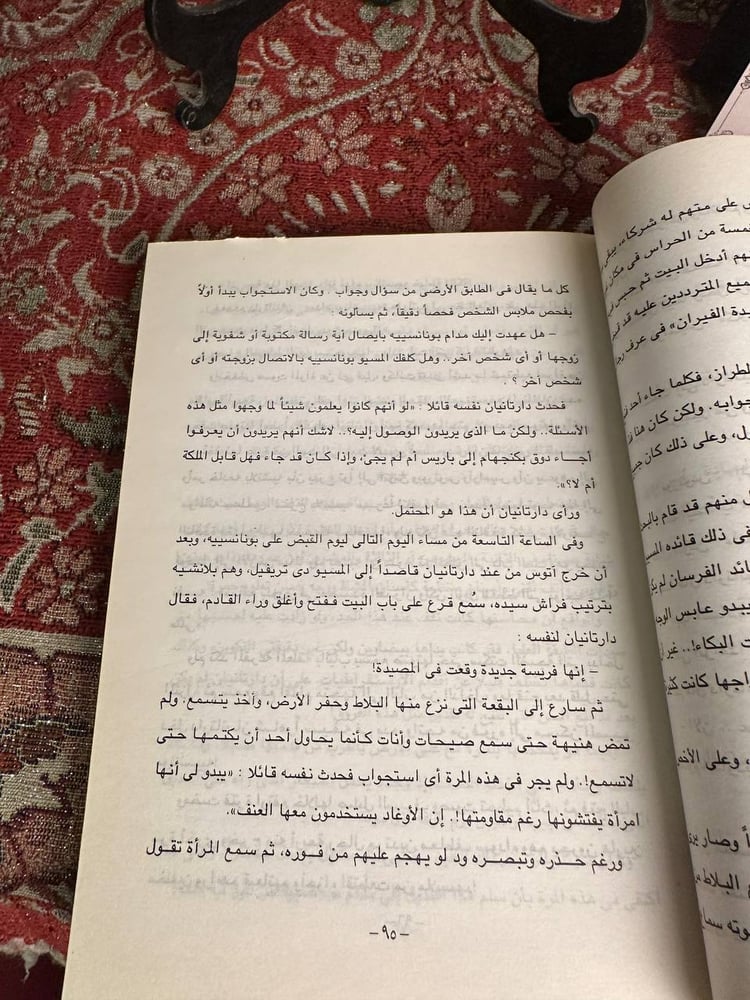 كل ما يقال فى الطابق الأرضى من سؤال وجواب . وكان الاستجواب يبدأ أولاً
بفحص ملابس الشخص فحصاً دقيقاً، ثم يسألونه :
– هل عهدت إليك مدام بونانسييه بايصال أية رسالة مكتوبة أو شفوية إلى
زوجها أو أى شخص آخر.. وهل كلفك المسيو بونانسييه بالاتصال بزوجته أو أى
شخص آخر ؟ .
فحدث دارتانيان نفسه قائلا : «لو أنهم كانوا يعلمون شيئاً لما وجهوا مثل هذه
الأسئلة.. ولكن ما الذى يريدون الوصول إليه؟.. لاشك أنهم يريدون أن يعرفوا
أجاء دوق بكنجهام إلى باريس أم لم يجئ، وإذا كان قد جاء فهل قابل الملكة
أم لا؟».
ورأى دارتانيان أن هذا هو المحتمل.
وفى الساعة التاسعة من مساء اليوم التالى ليوم القبض على بونانسييه، وبعد
أن خرج آتوس من عند دارتانيان قاصداً إلى المسيو دى تريفيل، وهم بلانشيه
بترتيب فراش سيده، سُمع قرع على باب البيت ففتح وأغلق وراء القادم، فقال
دارتانيان لنفسه :
– إنها فريسة جديدة وقعت فى المصيدة!
ثم سارع إلى البقعة التى نزع منها البلاط وحفر الأرض، وأخذ يتسمع. ولم
تمض هنيهة حتى سمع صيحات وأنات كأنما يحاول أحد أن يكتمها حتى
لاتسمع!. ولم يجر فى هذه المرة أى استجواب فحدث نفسه قائلا : «يبدو لى أنها
امرأة يفتشونها رغم مقاومتها!. إن الأوغاد يستخدمون معها العنف».
ورغم حذره وتبصره ود لو يهجم عليهم من فوره، ثم سمع المرأة تقول
–٩٥–
على متهم له شركاء،
من الحراس فى مكان
أدخل البيت ثم حبس
المترددين عليه قد
الفيران» فى عرف
الطراز، فكلما جاء أحد
ولكن كان هذا
وعلى ذلك كان
منهم قد قام
فى ذلك قائده
الفرسان لم
يبدو عابس الوجه
البكاء!.. غير
كانت
وعلى
وصار
البلاط